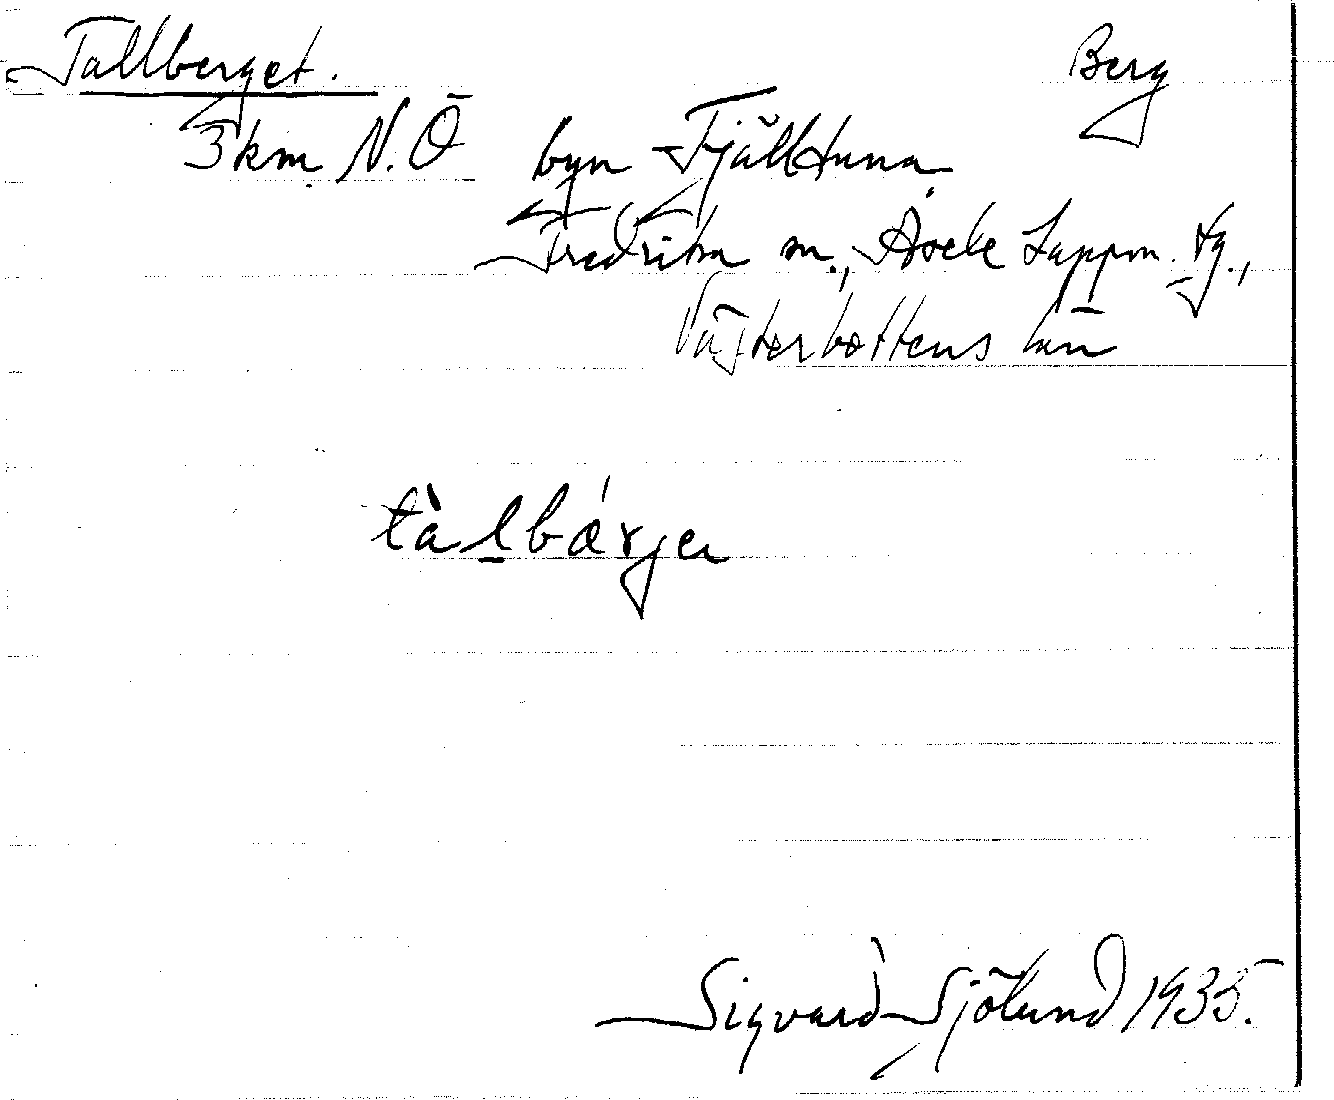 Tallberget. Berg
3 km N.Ö byn Fjälltuna
Fredrika sn., Åsele Lappm. tg.,
Västerbottens län
tàlbǽrjen
Sigvard Sjölund 1935.